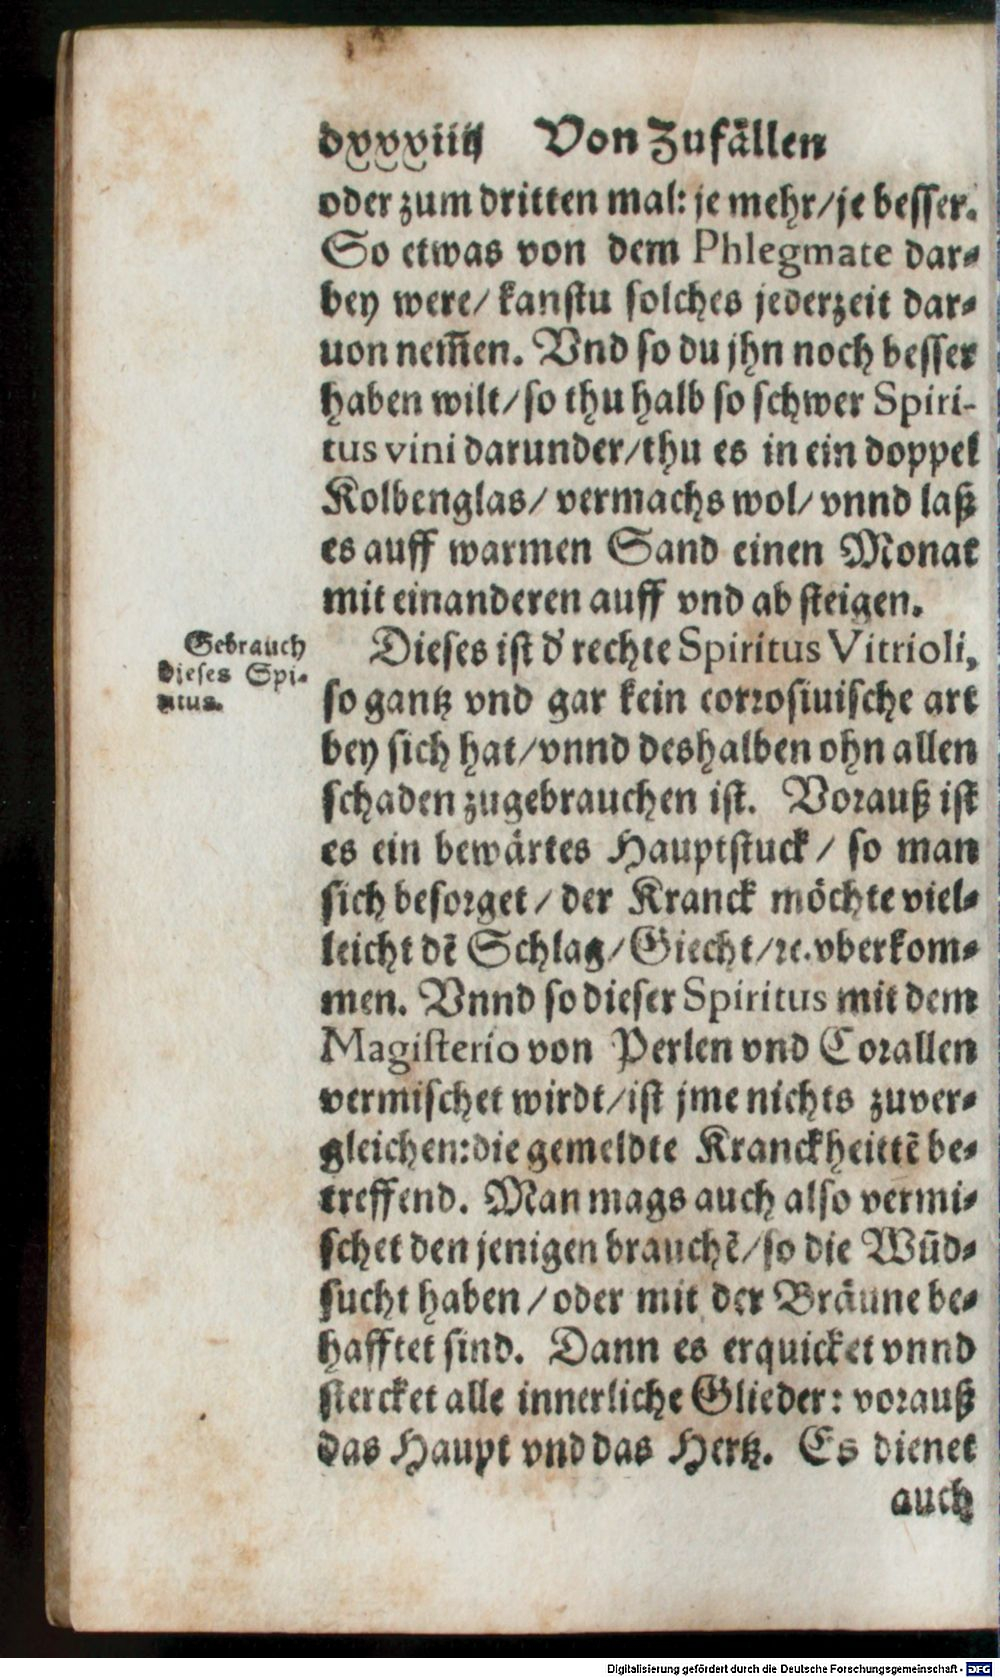 dxxxviiij Von Zufällen
oder zum dritten mal: je mehr/je besser.
So etwas von dem Phlegmate dar-
bey were/ kanstu solches jederzeit dar-
uon nem̃en. Vnd so du jhn noch besser
haben wilt/so thu halb so schwer Spiri-
tus vini darunder/thu es in ein doppel
Kolbenglas/ vermachs wol/ vnnd laß
es auff warmen Sand einen Monat
mit einanderen auff vnd ab steigen.
Gebrauch
dieses Spi-
ritus.
Dieses ist d' rechte Spiritus Vitrioli,
so gantz vnd gar kein corrosiuische art
bey sich hat/vnnd deshalben ohn allen
schaden zugebrauchen ist. Vorauß ist
es ein bewärtes Hauptstuck/ so man
sich besorget/ der Kranck möchte viel-
leicht dẽ Schlag/Giecht/ꝛc.vberkom-
men. Vnnd so dieser Spiritus mit dem
Magisterio von Perlen vnd Corallen
vermischet wirdt/ist jme nichts zuver-
gleichen:die gemeldte Kranckheittẽ be-
treffend. Man mags auch also vermi-
schet den jenigen brauchẽ/so die Wũd-
sucht haben/oder mit der Bräune be-
hafftet sind. Dann es erquicket vnnd
stercket alle innerliche Glieder: vorauß
das Haupt vnd das Hertz. Es dienet
auch
Digitalisierung gefördert durch die Deutsche Forschungsgemeinschaft - DFG